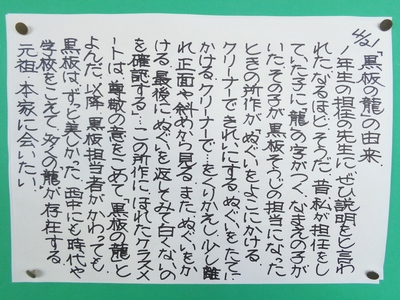 「黒板の龍」の由来.
1年生の担任の先生に、ぜひ説明をと言わ
れた。なるほど、そうだ。昔私が担任をし
ていた子に「龍」の字がつくなまえの子が
いた。その子が黒板そうじの担当になった
ときの所作が、「ぬぐいをよこにかける、
クリーナーできれいにする、ぬぐいをたてに
かける、クリーナーで…をくりかえし、少し離
れ正面や斜めから見る、またぬぐいをか
ける、最後にぬぐいを返してみて白くないの
を確認する」…この所作にほれたクラスメ
ートは、尊敬の意をこめて「黒板の龍」と
よんだ。以降、黒板担当者がかわっても、
黒板は、ずっと美しかった。西中にも時代や
学校をこえて、多くの龍が存在する。
元祖・本家に会いたい!